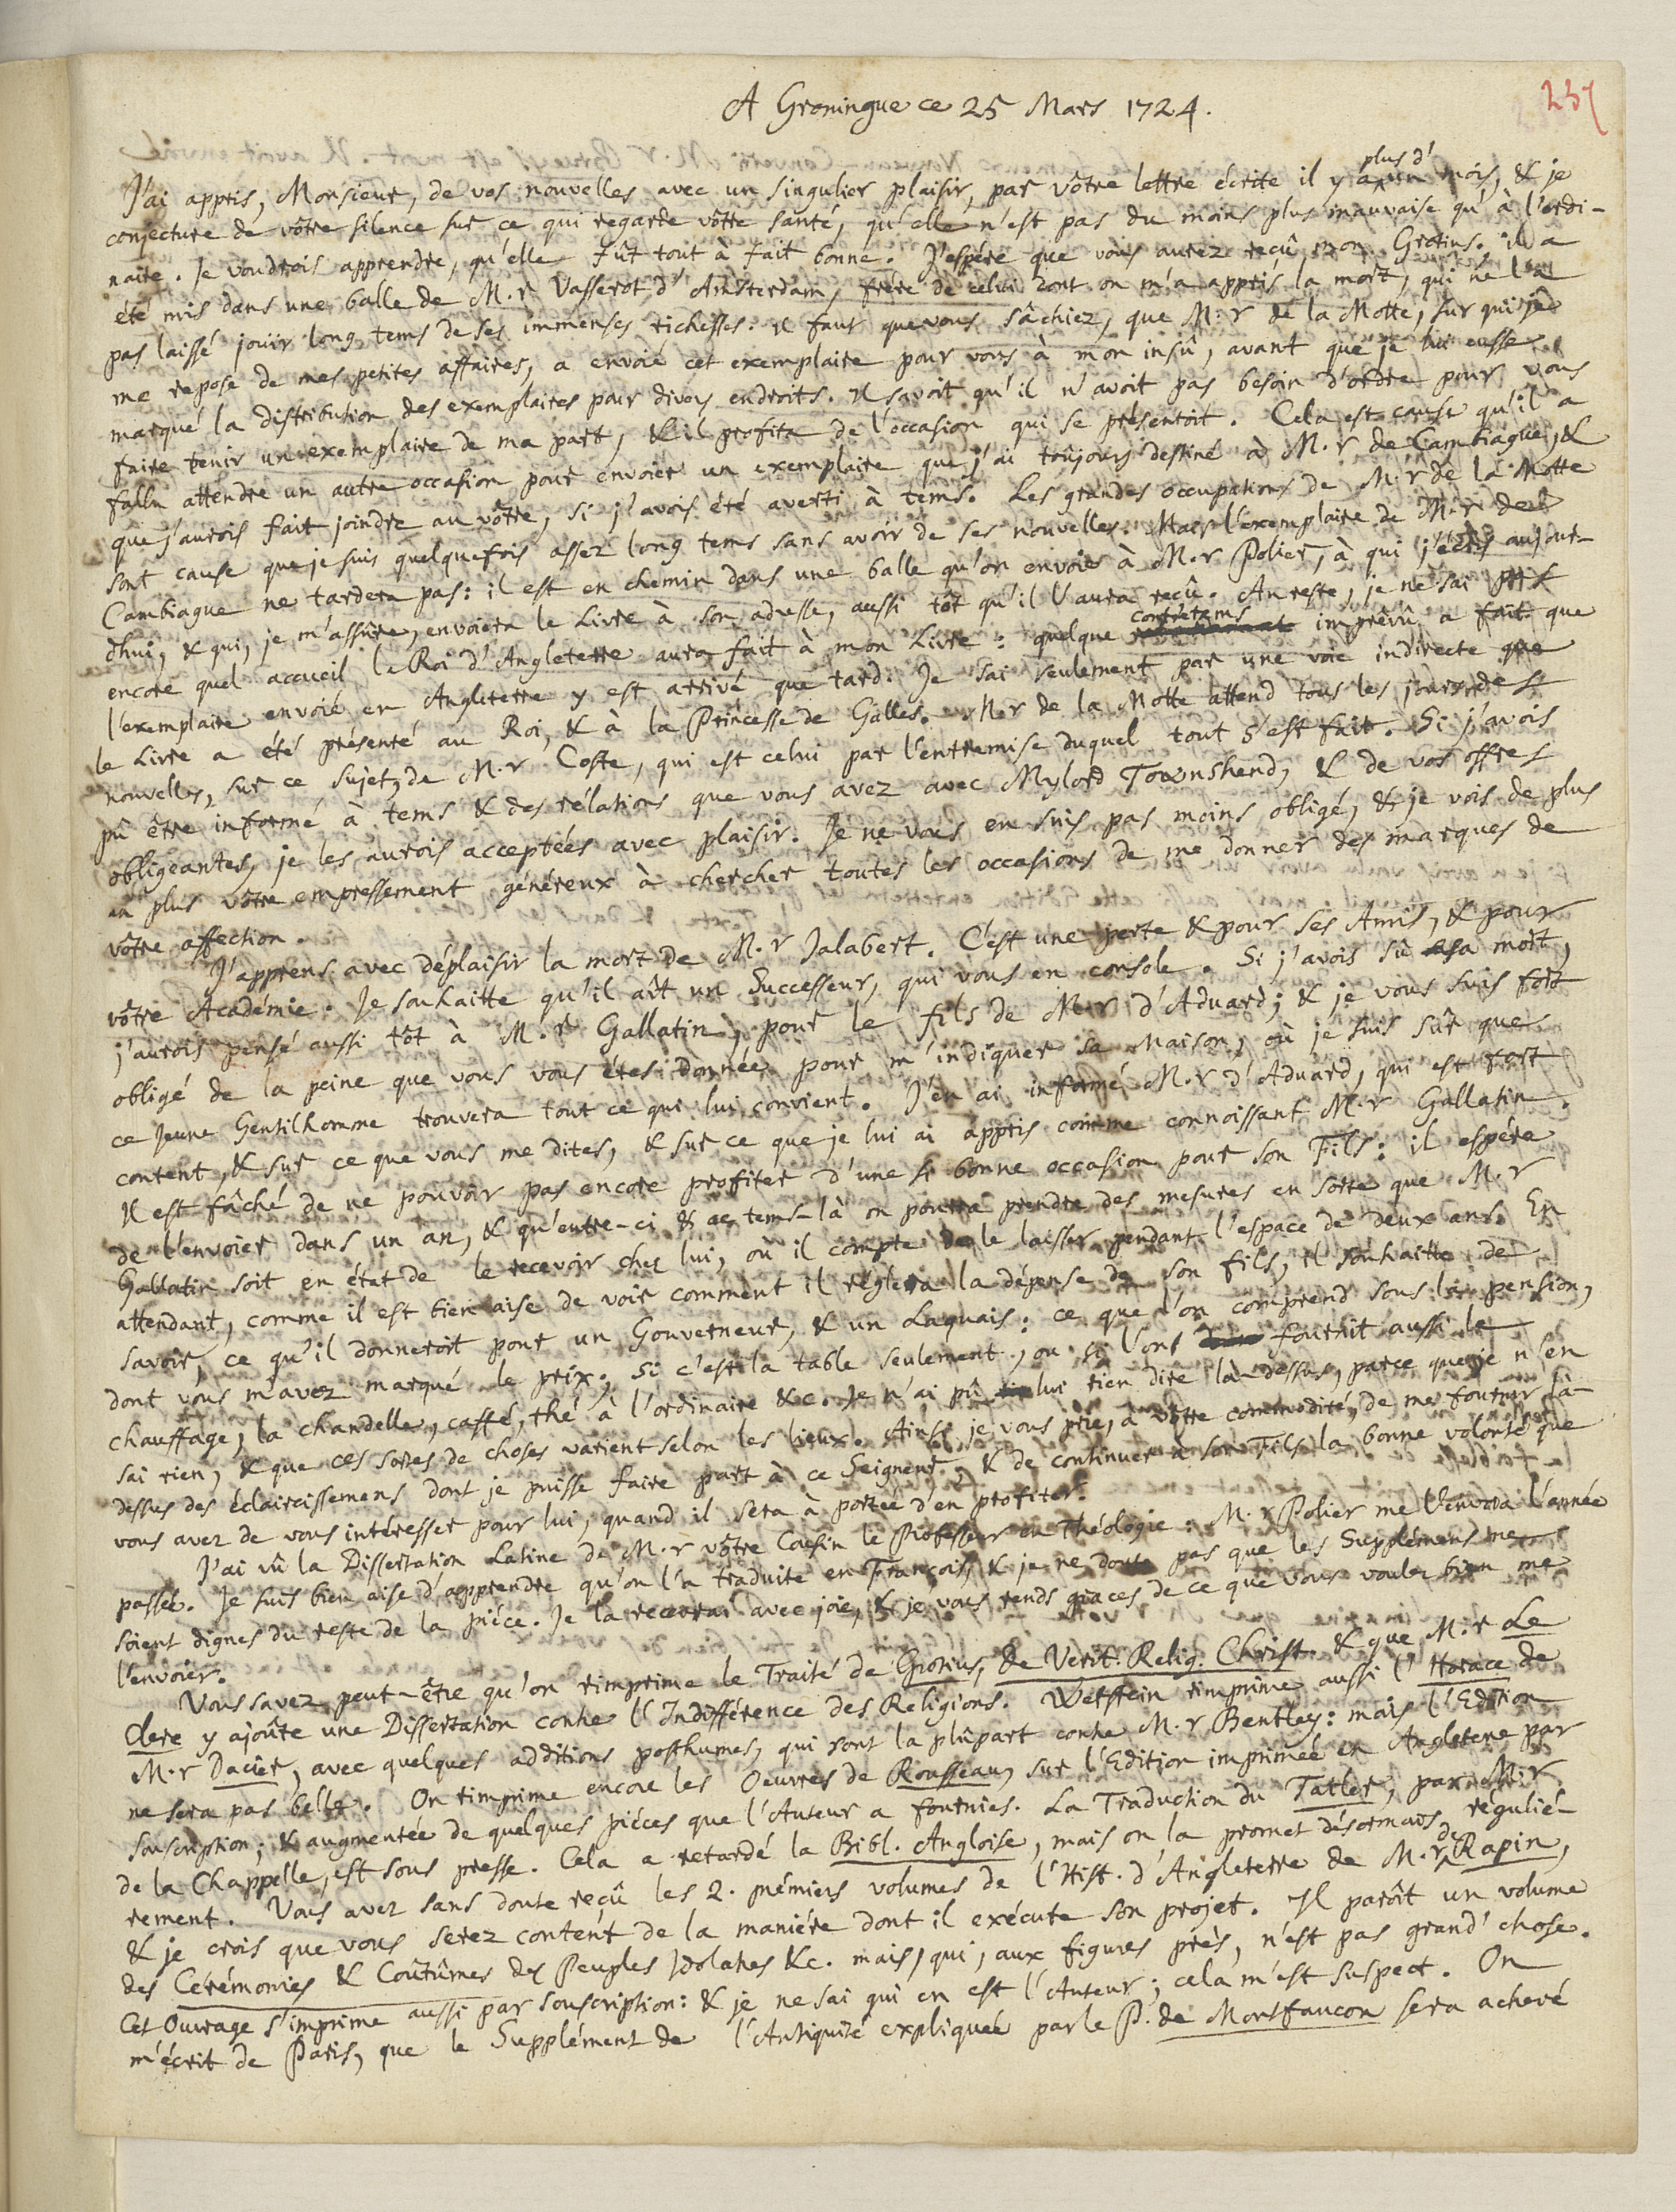 237
A Groningue ce 25 Mars 1724.
J'ai appris, Monsieur, de vos nouvelles avec un singulier plaisir, par vôtre lettre écrite il y a plus d'un mois, & je
conjecture de vôtre silence sur ce qui regarde vôtre santé, qu'elle n'est pas du moins plus mauvaise qu'à l'ordi-
naire. Je voudrois apprendre, qu'elle fût tout à fait bonne. J'espére que vous aurez reçû mon Grotius. il a
été mis dans une balle de M.r Vasserot d'Amsterdam, frére de celui dont on m'a appris la mort, qui ne l'a
pas laissé jouïr long tems de ses immenses richesses. il faut que vous sâchiez, que M.r de la Motte, sur qui je
me repose de mes petites affaires, a envoié cet exemplaire pour vous à mon insû, avant que je lui eusse
marqué la distribution des exemplaires pour divers endroits. Il savoit qu'il n'avoit pas besoin d'ordre pour vous
faire tenir un exemplaire de ma part, & il profita de l'occasion qui se présentoit. Cela est cause qu'il a
fallu attendre un autre occasion pour envoier un exemplaire que j'ai toujours destiné à M.r de Cambiague, &
que j'aurois fait joindre au vôtre, si j'avois été averti à tems. Les grandes occupations de M.r de la Motte
sont cause que je suis quelquefois assez long tems sans avoir de ses nouvelles. Mais l'exemplaire de M.r de
Cambiague ne tardera pas: il est en chemin dans une balle qu'on envoie à M.r Polier, à qui j'écris aujour-
dhui, & qui, je m'assûre, envoiera le Livre à son adresse, aussi tôt qu'il l'aura reçû. Au reste, je ne sai pas
encore quel accueil le Roi d'Angleterre aura fait à mon Livre: quelque contretems imprévû a fait que
l'exemplaire envoié en Angleterre y est arrivé que tard. Je sai seulement par une voie indirecte que
le Livre a été présenté au Roi, & à la Princesse de Galles. M.r de la Motte attend tous les jours des
nouvelles, sur ce sujet, de M.r Coste, qui est celui par l'entremise duquel tout s'est fait. Si j'avois
pû être informé à tems & des rélations que vous avez avec Mylord Townshend, & de vos offres
obligeantes, je les aurois acceptées avec plaisir. Je ne vous en suis pas moins obligé, & je vois de plus
en plus vôtre empressement généreux à chercher toutes les occasions de me donner des marques de
vôtre affection.
J'apprens avec déplaisir la mort de M.r Jalabert. C'est une perte & pour ses Amis, & pour
vôtre Académie. Je souhaitte qu'il aît un Successeur, qui vous en console. Si j'avois sû sa mort,
j'aurois pensé aussi tôt à M.r Gallatin, pour le fils de M.r d'Aduard; & je vous suis fort
obligé de la peine que vous vous étes donnée pour m'indiquer sa Maison, où je suis sûr que
ce jeune Gentilhomme trouvera tout ce qui lui convient. J'en ai informé M.r d'Aduard, qui est fort
content, & sur ce que vous me dites, & sur ce que je lui ai appris comme connoissant M.r Gallatin.
Il est fâché de ne pouvoir pas encore profiter d'une si bonne occasion pour son Fils: il espére
de l'envoier dans un an, & qu'entre-ci & ce tems-là on pourra prendre des mesures en sorte que M.r
Gallatin soit en état de le recevoir chez lui, où il compte de le laisser pendant l'espace de deux ans. En
attendant, comme il est bien aise de voir comment il réglera la dépense de son fils, il souhaitte de
savoir, ce qu'il donneroit pour un Gouverneur, & un Laquais: ce que l'on comprend sous la pension,
dont vous m'avez marqué le prix. Si c'est la table seulement, ou si l'on fournit aussi le
chauffage, la chandelle, caffé, thé à l'ordinaire &c. Je n'ai pû lui rien dire là-dessus, parce que je n'en
sai rien, & que ces sortes de choses varient selon les lieux. Ainsi je vous prie, à vôtre commodité, de me fournir là-
dessus des éclaircissemens dont je puisse faire part à ce Seigneur, & de continuer à son Fils la bonne volonté que
vous avez de vous intéresser pour lui, quand il sera à portée d'en profiter.
J'ai vû la Dissertation Latine de M.r vôtre Cousin le Professeur en Théologie: M.r Polier me l'envoia l'année
passée. Je suis bien aise d'apprendre qu'on l'a traduite en François, & je ne doute pas que les Supplémens ne
soient dignes du reste de la piéce. Je la recevrai avec joie, & je vous rends graces de ce que vous voulez bien me
l'envoier.
Vous savez peut-être qu'on rimprime le Traité de Grotius, de Verit. Relig. Christ. & que M.r Le
Clerc y ajoûte une Dissertation contre l'Indifférence des Religions. Wetstein rimprime aussi l'Horace de
M.r Dacier, avec quelques additions posthumes, qui sont la plûpart contre M.r Bentley: mais l'Edition
ne sera pas belle. On rimprime encore les Oeuvres de Rousseau, sur l'Edition imprimée en Angleterre par
souscription; & augmentée de quelques piéces que l'Auteur a fournies. La Traduction du Tatler, par M.r
de la Chappelle, est sous presse. Cela a retardé la Bibl. Angloise, mais on la promet désormais régulié-
rement. Vous avez sans doute reçû les 2. prémiers volumes de l'Hist. d'Angleterre de M.r de Rapin,
& je crois que vous serez content de la maniére dont il exécute son projet. Il paroît un volume
des Cérémonies & Coûtumes des Peuples Idolatres &c. mais, qui, aux figures près, n'est pas grand' chose.
Cet Ouvrage s'imprime aussi par souscription: & je ne sai qui en est l'Auteur; cela m'est suspect. On
m'écrit de Paris, que le Supplément de l'Antiquité expliquée par le P. de Montfaucon sera achevé